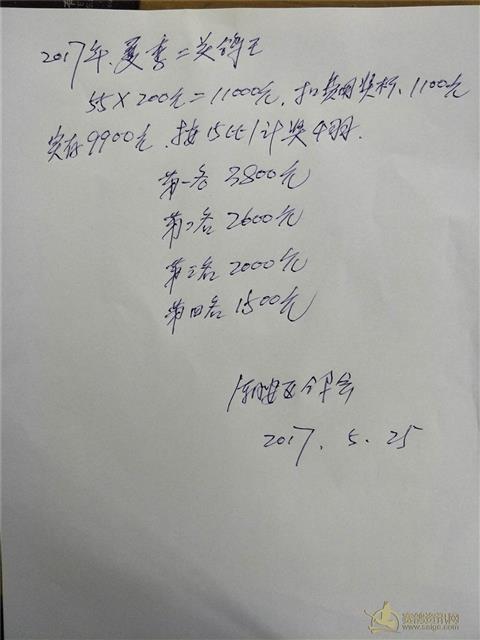 2017年.夏季二关鸽王
55×200元=11000元.扣费用奖杯、1100元
实存9900元.按15比1计奖4羽.
第一名 3800元
第二名 2600元
第三名 2000元
第四名 1500元
2017.5.25
赛鸽资讯网
www.saige.com